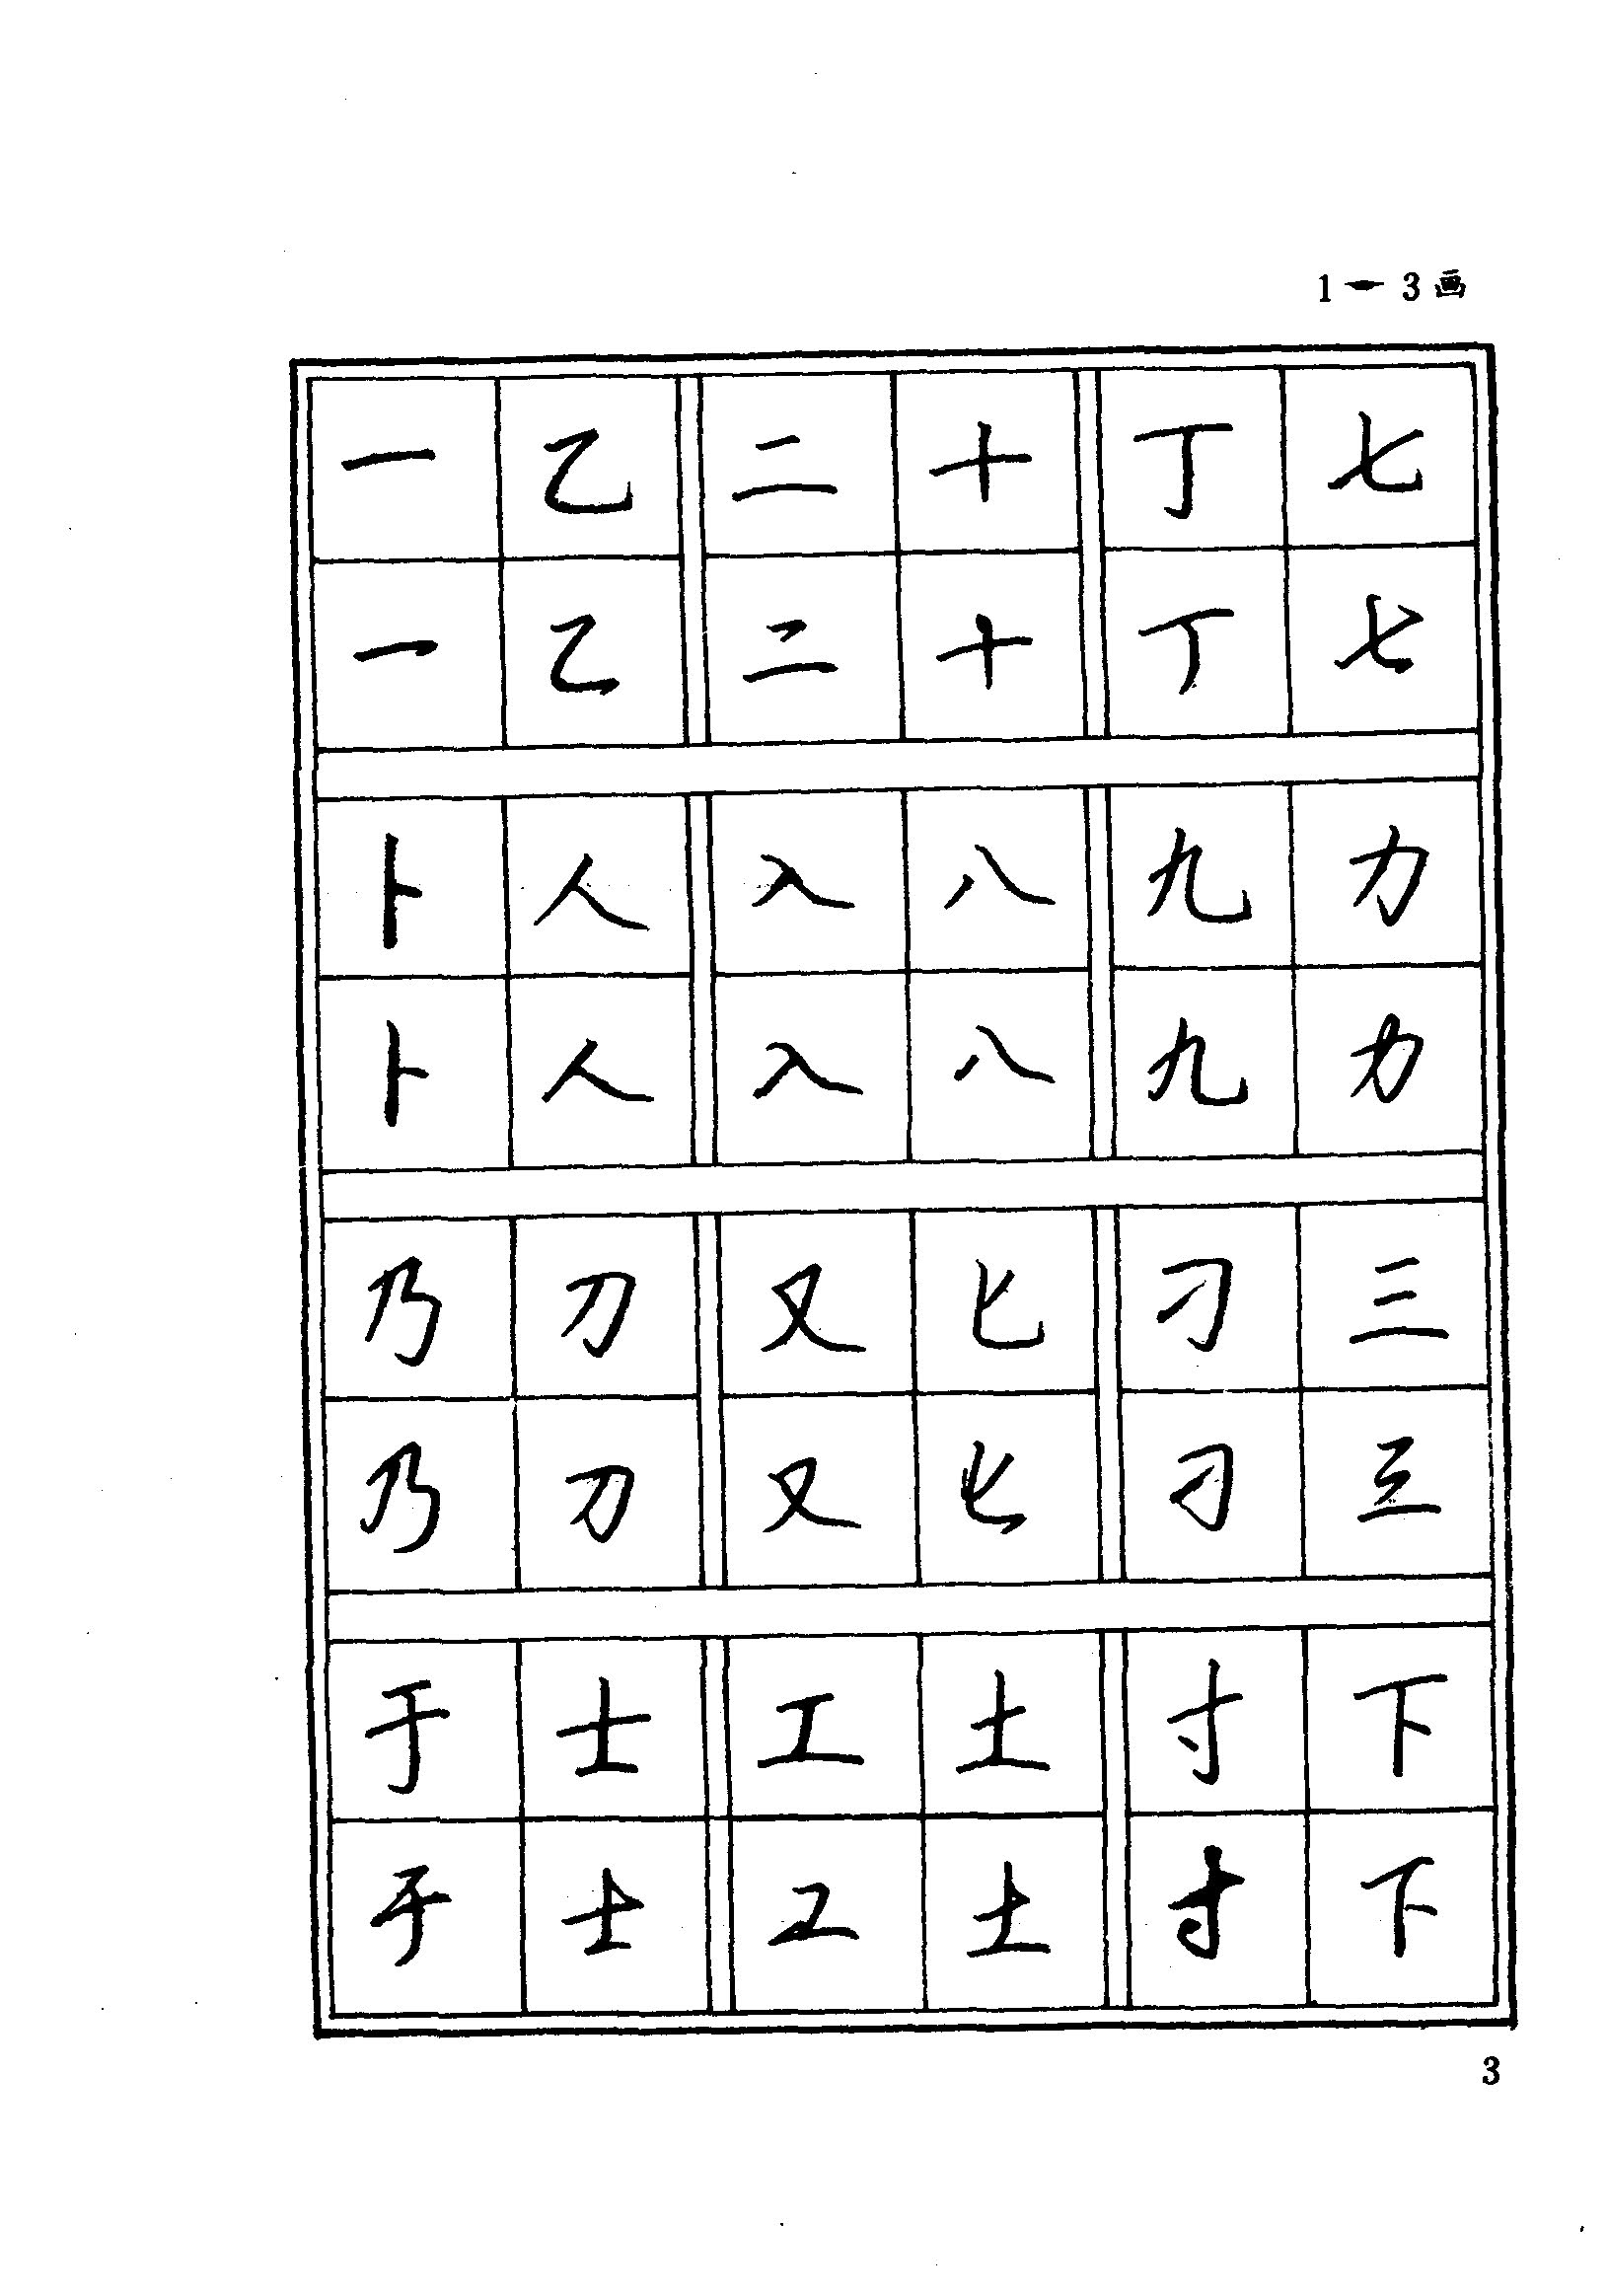 1一3画
一 乙 二 十 丁 七
一 乙 二 十 丁 七
卜 人 入 八 九 力
卜 人 入 八 九 力
乃 刀 又 匕 刁 三
乃 刀 又 匕 刁 三
于 士 工 土 寸 下
于 士 工 土 寸 下
3